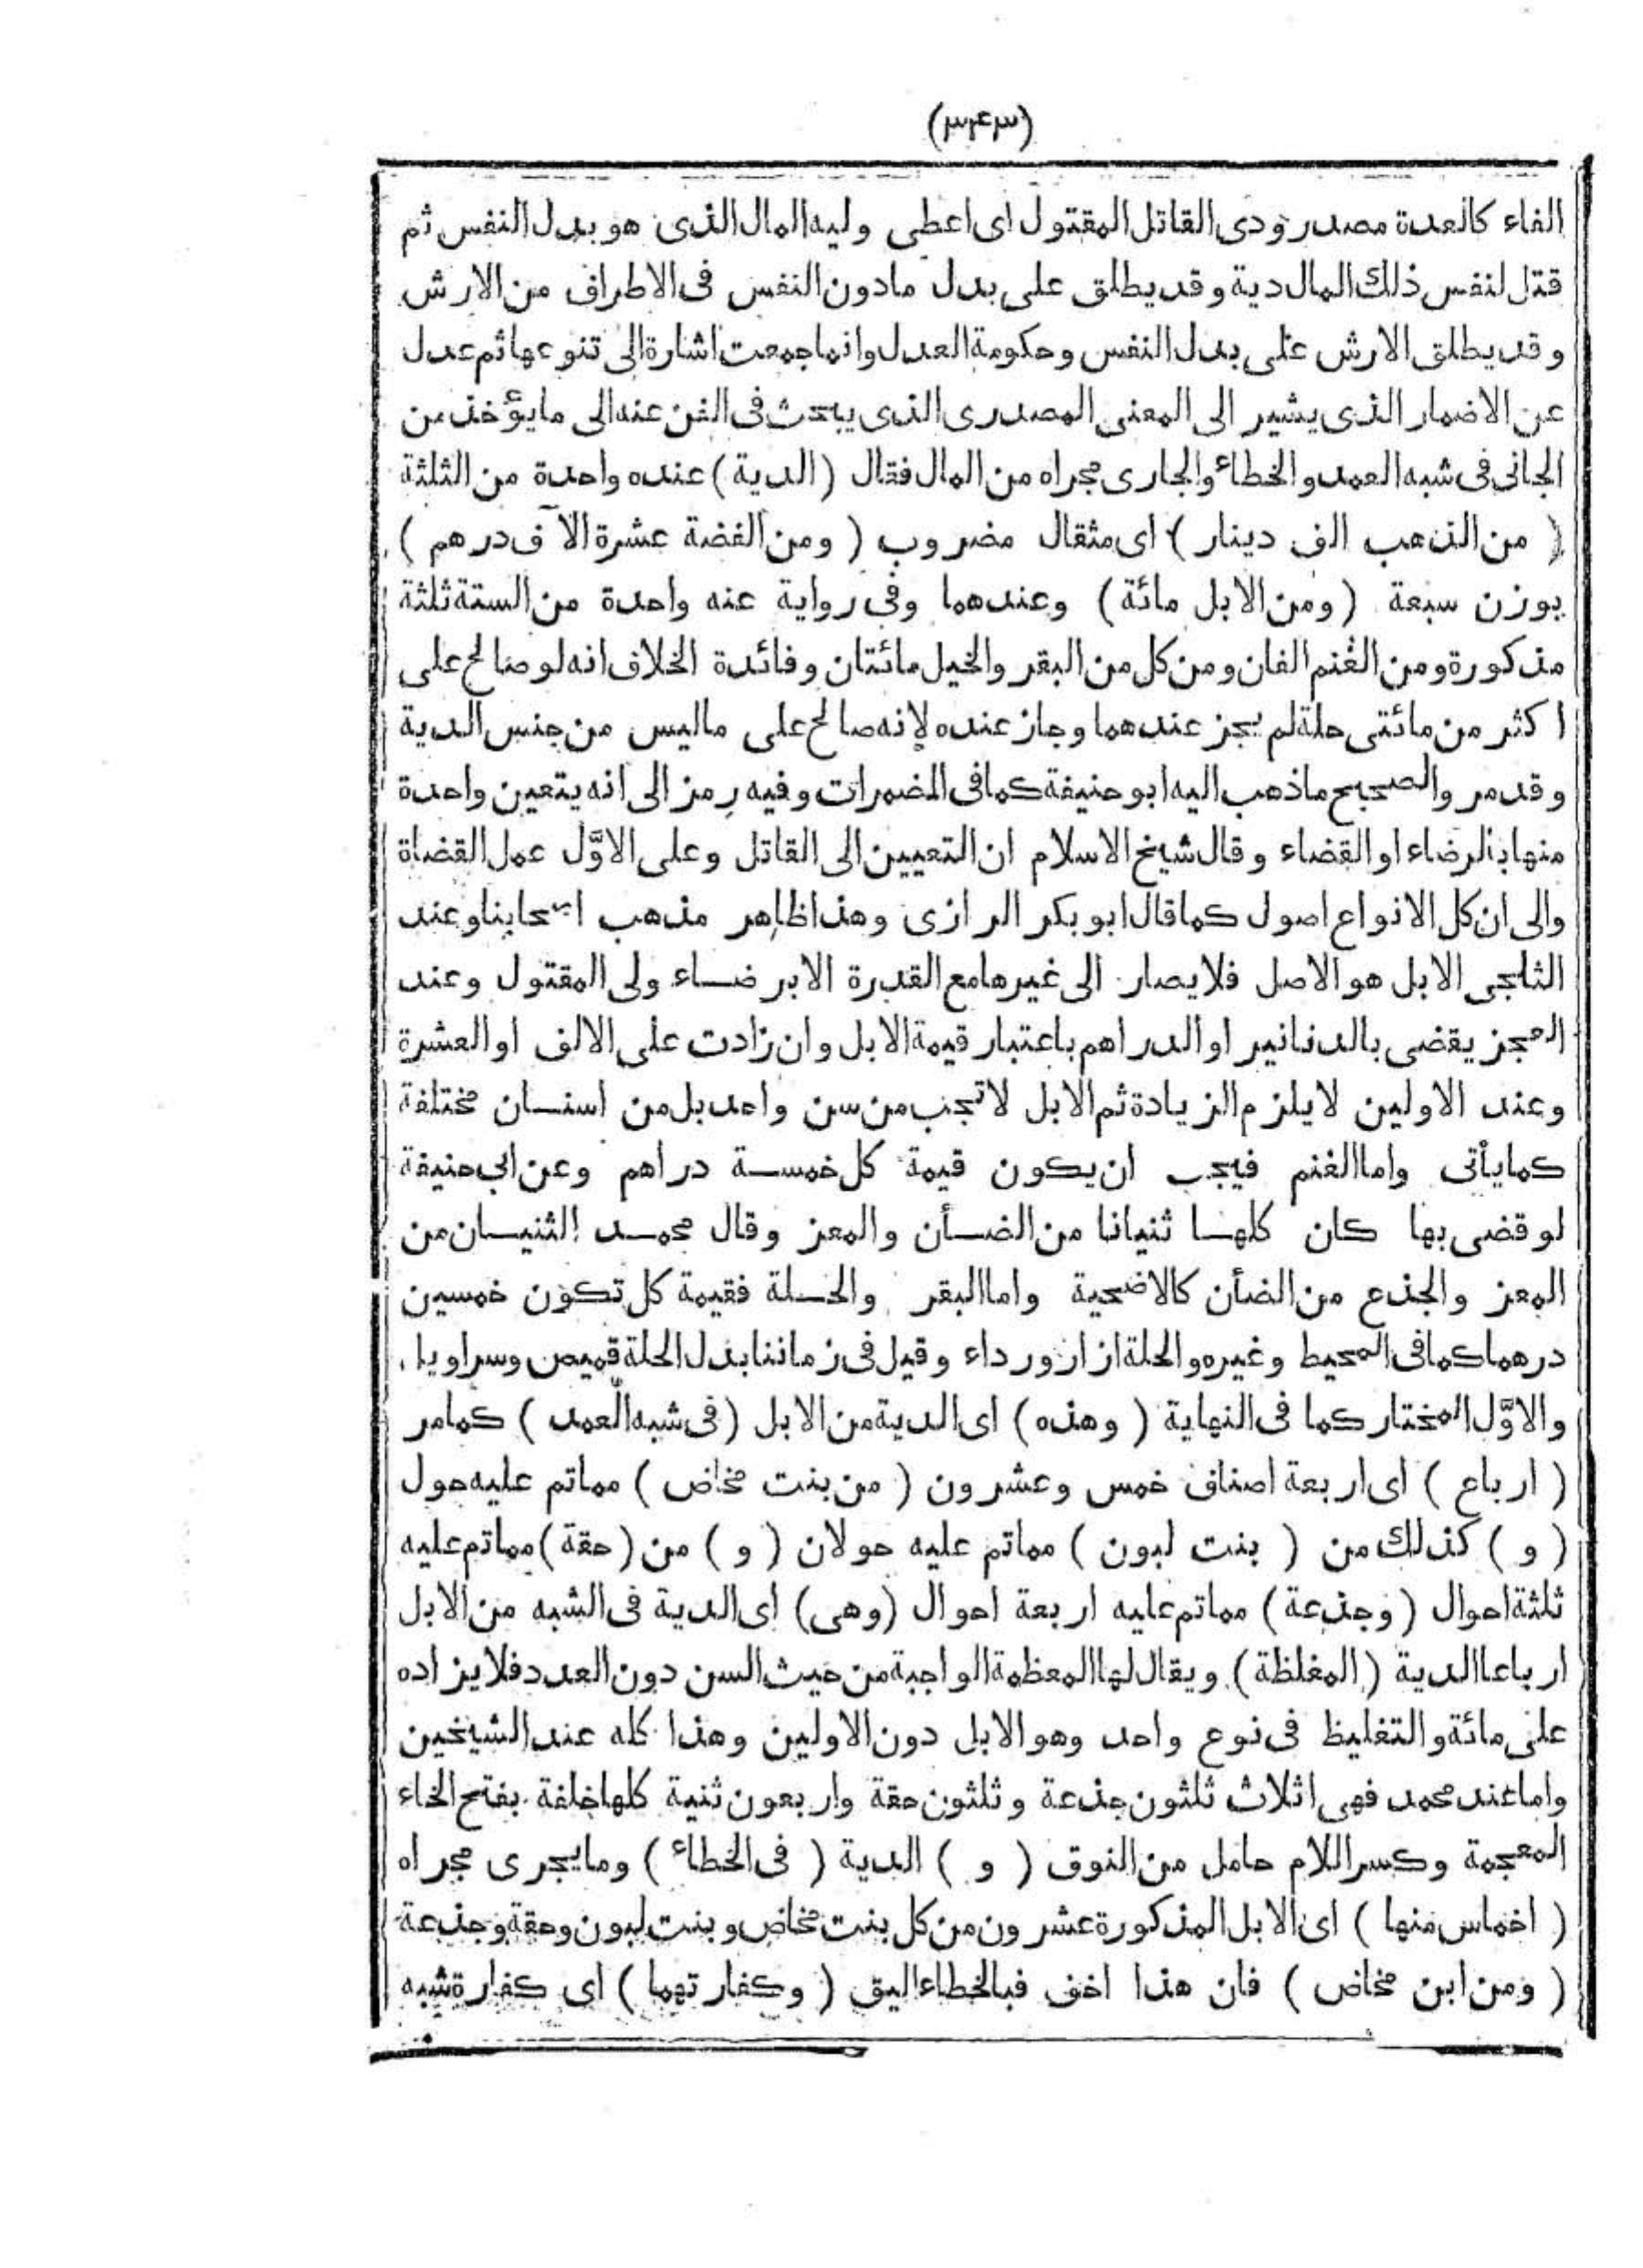 (٣٤٣)
الفاء كالعدة مصدر ودى القاتل المقتول اى اعطى وليه المال الذى هو بدل النفس ثم
قتل لنفس ذلك المال دية وقد يطلق على بدل مادون النفس فى الاطراف من الارش
وقد يطلق الارش على بدل النفس وحكومة العدل وانما جمعت اشارة الى تنوعها ثم عدل
عن الاضمار الذى يشير الى المعنى المصدرى الذى يبحث فى الفن عنه الى ما يؤخذ من
الجانى فى شبه العمد والخطاء والجارى مجراه من المال فقال (الدية) عنده واحدة من الثلثة
( من الذهب الف دينار ) اى مثقال مضروب ( ومن الفضة عشرة الآف درهم )
بوزن سبعة (ومن الابل مائة) وعندهما وفى رواية عنه واحدة من الستة ثلثة
مذكورة ومن الغنم الفان ومن كل من البقر والخيل مائتان وفائدة الخلاف انه لو صالح على
اكثر من مائتى حلة لم يجز عندهما وجاز عنده لانه صالح على ماليس من جنس الدية
وقد مر والصحيح ماذهب اليه ابو حنيفة كما فى المضمرات وفيه رمز الى انه يتعين واحدة
منها بالرضاء او القضاء وقال شيخ الاسلام ان التعيين الى القاتل وعلى الاوّل عمل القضاة
والى ان كل الانواع اصول كما قال ابو بكر الرازى وهذا ظاهر مذهب اصحابنا وعند
الثلجى الابل هو الاصل فلا يصار الى غيرها مع القدرة الا برضاء ولى المقتول وعند
العجز يقضى بالدنانير او الدراهم باعتبار قيمة الابل وان زادت على الالف او العشرة
وعند الاولين لا يلزم الزيادة ثم الابل لا تجب من سن واحد بل من اسنان مختلفة
كما يأتى واما الغنم فيجب ان يكون قيمة كل خمسة دراهم وعن ابى حنيفة
لو قضى بها كان كلها ثنيانا من الضأن والمعز وقال محمد الثنيان من
المعز والجذع من الضأن كالاضحية واما البقر والحلة فقيمة كل تكون خمسين
درهما كما فى المحيط وغيره والحلة ازار ورداء وقيل فى زماننا بدل الحلة قميص وسراويل
والاوّل المختار كما فى النهاية ( وهذه ) اى الدية من الابل (فى شبه العمد ) كما مر
( ارباع ) اى اربعة اصناف خمس وعشرون ( من بنت مخاض ) مماتم عليه حول
( و ) كذلك من ( بنت لبون ) مماتم عليه حولان ( و ) من (حقة) مماتم عليه
ثلثة احوال ( وجذعة ) مماتم عليه اربعة احوال (وهى) اى الدية فى الشبه من الابل
ارباعا الدية ( المغلظة ) ويقال لها المعظمة الواجبة من حيث السن دون العدد فلا يزاده
على مائة والتغليظ فى نوع واحد وهو الابل دون الاولين وهذا كله عند الشيخين
واما عند محمد فهى اثلاث ثلثون جذعة وثلثون حقة واربعون ثنية كلها خلفة بفتح الخاء
المعجمة وكسر اللام حامل من النوق ( و ) الدية ( فى الخطاء ) وما يجرى مجراه
( اخماس منها ) اى الابل المذكورة عشرون من كل بنت مخاض وبنت لبون وحقة وجذعة
( ومن ابن مخاض ) فان هذا اخف فبالخطاء اليق ( وكفارتهما ) اى كفارة شبه